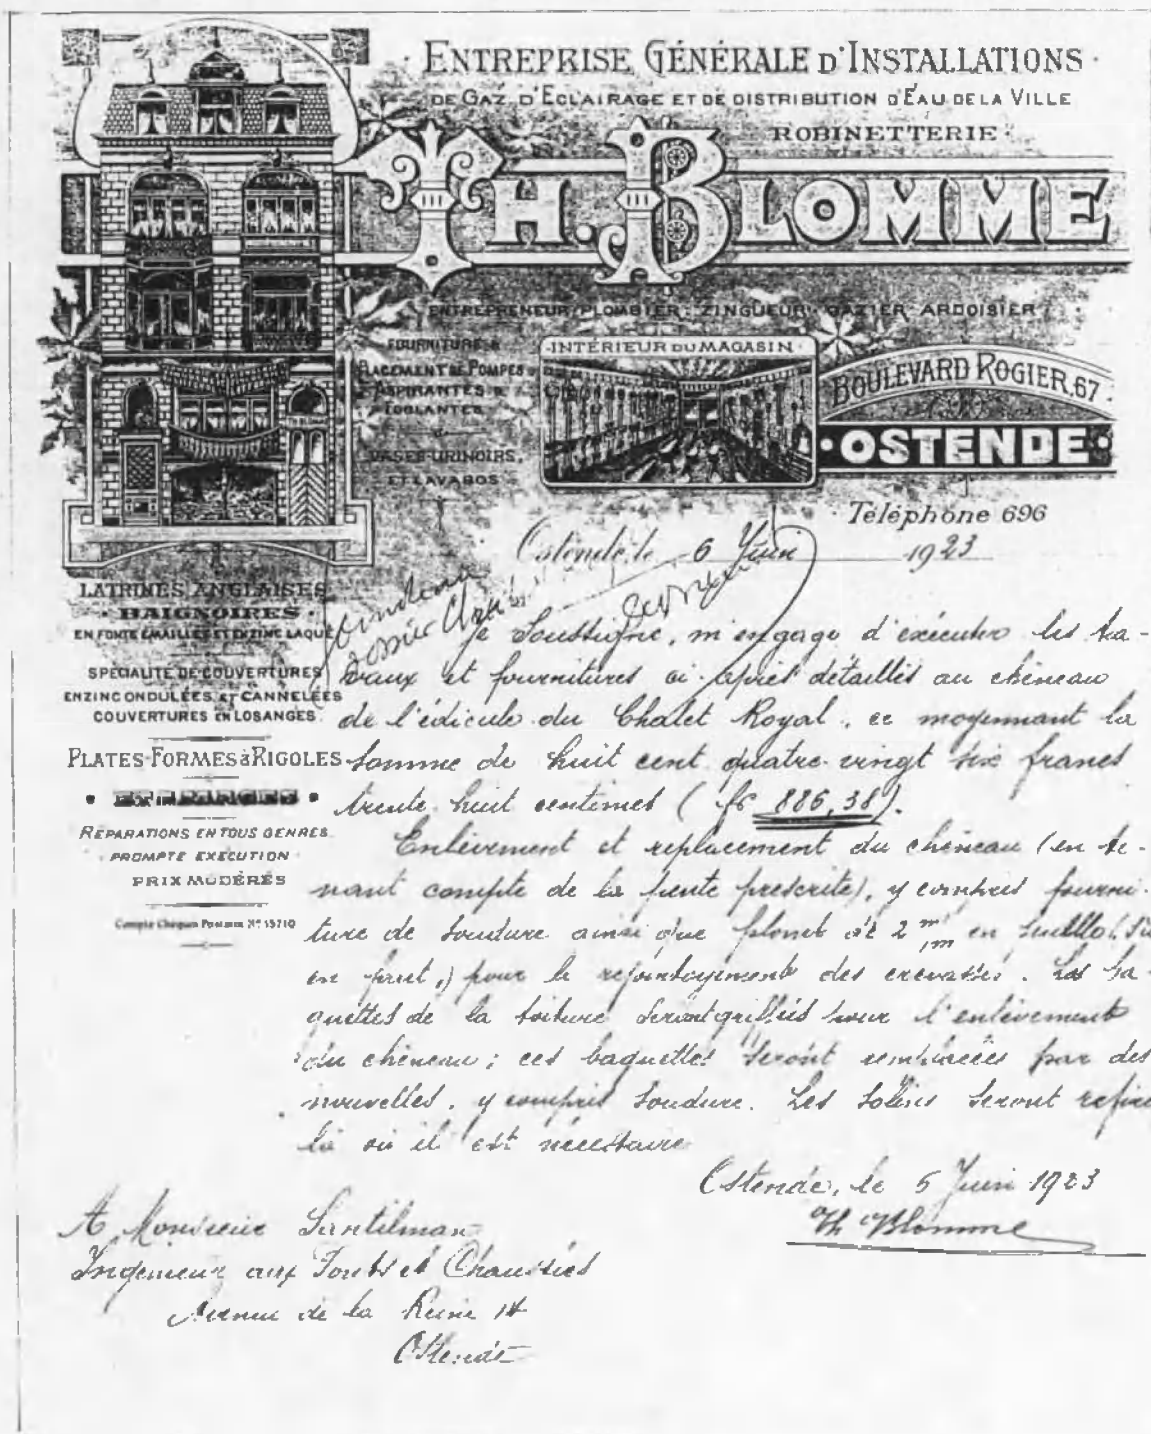 ENTREPRISE GÉNÉRALE D'INSTALLATIONS
DE GAZ D'ECLAIRAGE ET DE DISTRIBUTION D'EAU DE LA VILLE
ROBINETTERIE
TH. BLOMME
ENTREPRENEUR PLOMBIER ZINGUEUR GAZIER ARDOISIER
FOURNITURE &
PLACEMENT DE POMPES
ASPIRANTES &
FOULANTES
VASES-URINOIRS,
ET LAVABOS
INTÉRIEUR DU MAGASIN
BOULEVARD ROGIER, 67.
OSTENDE
Téléphone 696
Ostende, le 6 Juin 1923
LATRINES ANGLAISES
BAIGNOIRES
EN FONTE EMAILLÉE ET EN ZINC LAQUÉ
SPÉCIALITÉ DE COUVERTURES
EN ZINC ONDULÉES ET CANNELÉES
COUVERTURES EN LOSANGES
PLATES-FORMES à RIGOLES
RÉPARATIONS EN TOUS GENRES
PROMPTE EXÉCUTION
PRIX MODÉRÉS
Compte Chèques Postaux N° 15710
Je Soussigné, m'engage d'exécuter les tra-
vaux et fournitures ci-après détaillés au chéneau
de l'édicule du Chalet Royal, ce moyennant la
somme de huit cent quatre-vingt six francs
trente huit centimes (fs 886,38).
Enlèvement et replacement du chéneau (en te-
nant compte de la pente prescrite), y compris fourni-
ture de soudure ainsi que plomb de 2 m/m en feuille (s'il
en faut,) pour le rejointoyement des crevasses. Les ba-
guettes de la toiture seront pour l'enlèvement
du chéneau; ces baguettes seront remplacées par des
nouvelles, y compris soudure. Les solins seront refaits
là où il est nécessaire
Ostende, le 5 Juin 1923
Th Blomme
A Monsieur Santilman
Ingénieur aux Ponts et Chaussées
Avenue de la Reine 14
Ostende